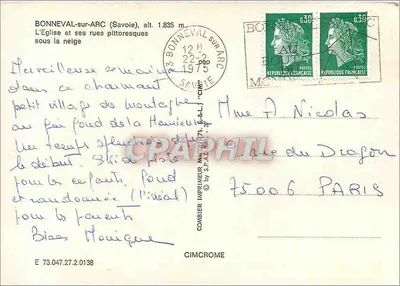 BONNEVAL-sur-ARC (Savoie), alt. 1.835 m.
L'Eglise et ses rues pittoresques
sous la neige
73 BONNEVAL sur ARC
12 H
22-2
1975
SAVOIE
0,30
0,30
POSTES
REPUBLIQUE FRANCAISE
REPUBLIQUE FRANCAISE
Merveilleuse semaine
dans ce charmant
petit village de montagne
au fin fond de la Maurienne
Un temps splendide
le début. Ski de piste
pour les enfants, fond
et randonnée (l'idéal)
pour les parents
Bises Monique
Mme A. Nicolas
rue du Dragon
75006 PARIS
CPARAMA
COMBIER IMPRIMEUR MACON
CIMCROME
E 73.047.27.2.0138